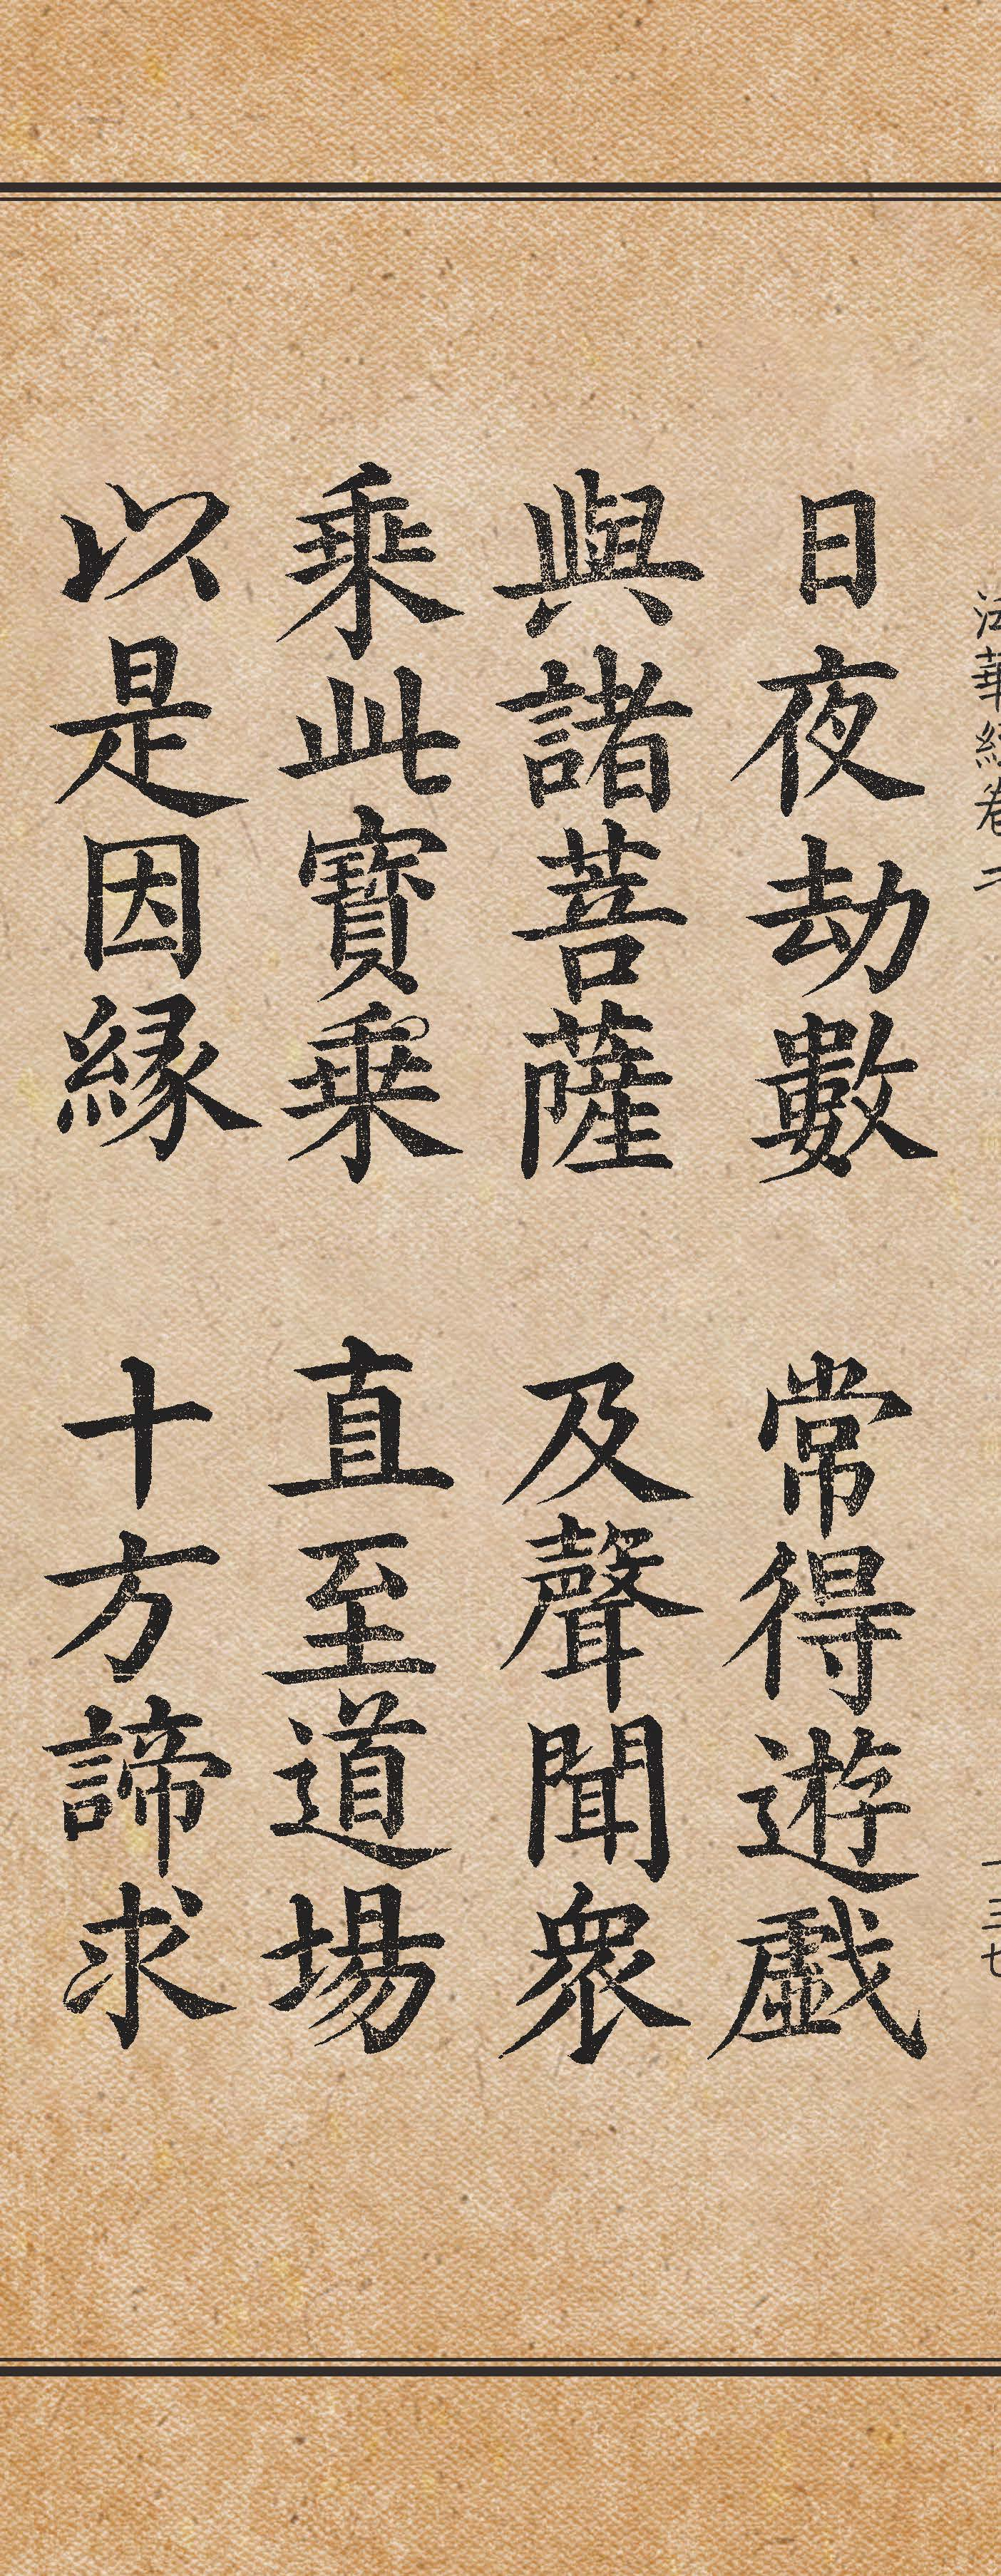 法華經卷二
一三七
日夜劫數 常得遊戲
與諸菩薩 及聲聞眾
乘此寶乘 直至道場
以是因緣 十方諦求